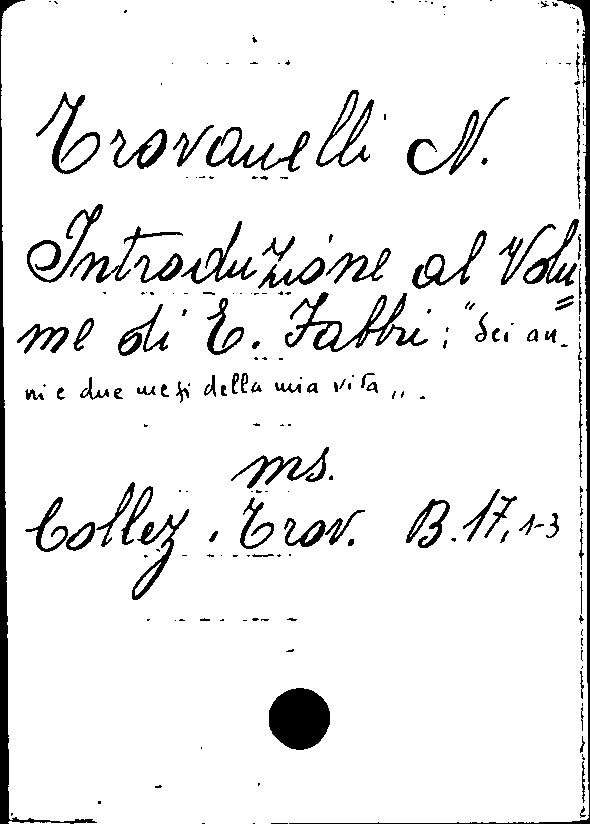 Trovanelli N.
Introduzione al Volu=
me di E. Fabbri: "Sei an-
ni e due mesi della mia vita„.
ms.
Collez. Trov. B.17,1-3